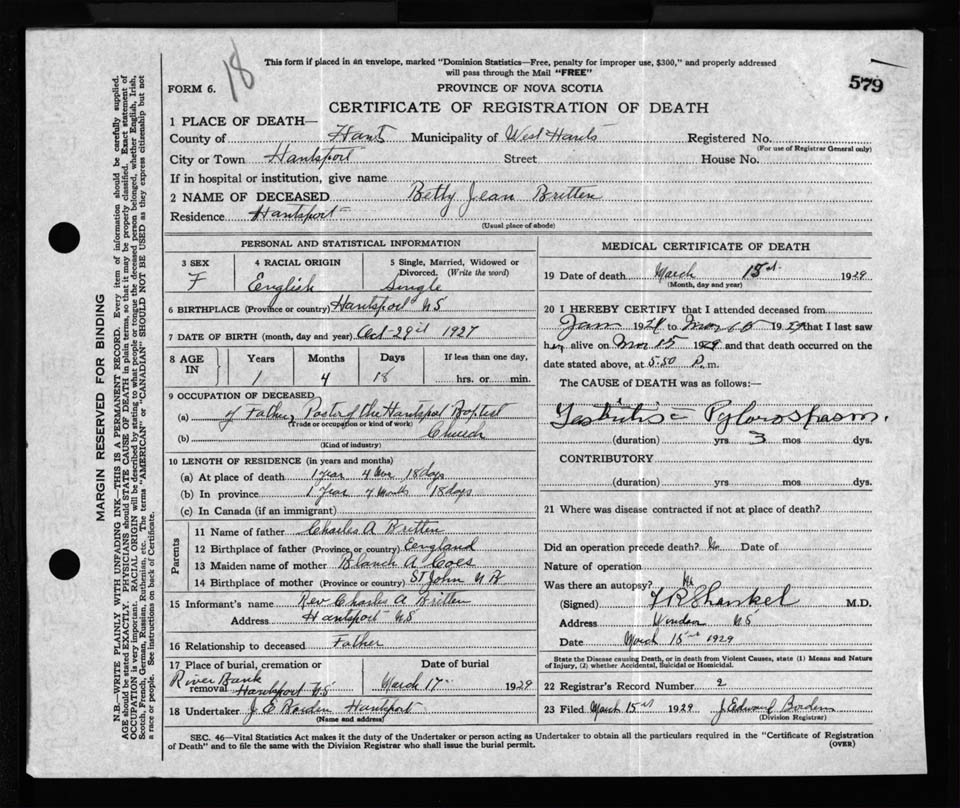 18
This form if placed in an envelope, marked "Dominion Statistics—Free, penalty for improper use, $300," and properly addressed
will pass through the Mail "FREE"
579
FORM 6.
PROVINCE OF NOVA SCOTIA
CERTIFICATE OF REGISTRATION OF DEATH
1 PLACE OF DEATH—
County of Hants Municipality of West Hants Registered No.
(For use of Registrar General only)
City or Town Hantsport Street House No.
If in hospital or institution, give name
2 NAME OF DECEASED Betty Jean Britten
Residence Hantsport
(Usual place of abode)
MARGIN RESERVED FOR BINDING
N.B.—WRITE PLAINLY WITH UNFADING INK—THIS IS A PERMANENT RECORD. Every item of information should be carefully supplied.
AGE should be stated EXACTLY. PHYSICIANS should STATE CAUSE OF DEATH in plain terms, so that it may be properly classified. Exact statement of
OCCUPATION is very important. RACIAL ORIGIN will be described by stating to what people or tongue the deceased person belonged, whether English, Irish,
Scotch, French, German, Russian, Ruthenian, etc. The terms "AMERICAN" or "CANADIAN" SHOULD NOT BE USED as they express citizenship but not
a race or people. See instructions on back of Certificate.
PERSONAL AND STATISTICAL INFORMATION
3 SEX
F
4 RACIAL ORIGIN
English
5 Single, Married, Widowed or
Divorced. (Write the word)
Single
6 BIRTHPLACE (Province or country) Hantsport NS
7 DATE OF BIRTH (month, day and year) Oct 29th 1927
8 AGE IN
Years Months Days If less than one day,
1 4 18 hrs. or min.
9 OCCUPATION OF DECEASED
(a) of Father Paster of the Hantsport Baptist
(Trade or occupation or kind of work)
(b) Church
(Kind of industry)
10 LENGTH OF RESIDENCE (in years and months)
(a) At place of death 1 year 4 mos 18 days
(b) In province 1 Year 4 Months 18 days
(c) In Canada (if an immigrant)
Parents
11 Name of father Charles A Britten
12 Birthplace of father (Province or country) England
13 Maiden name of mother Blanch A Coes
14 Birthplace of mother (Province or country) St John NB
15 Informant's name Rev Charles A Britten
Address Hantsport NS
16 Relationship to deceased Father
17 Place of burial, cremation or
removal River Bank
Hantsport NS
Date of burial
March 17 1929
18 Undertaker J E Borden Hantsport
(Name and address)
MEDICAL CERTIFICATE OF DEATH
19 Date of death March 15th 1929
(Month, day and year)
20 I HEREBY CERTIFY that I attended deceased from
Jan 1929 to Mar 15 1929 that I last saw
her alive on Mar 15 1929 and that death occurred on the
date stated above, at 5.50 P. m.
The CAUSE of DEATH was as follows:—
Gastritis = Pylorospasm.
(duration) yrs 3 mos dys.
CONTRIBUTORY
(duration) yrs mos dys.
21 Where was disease contracted if not at place of death?
Did an operation precede death? No Date of
Nature of operation
Was there an autopsy? No
(Signed) F R Shankel M.D.
Address Windsor NS
Date March 15 1929
State the Disease causing Death, or in death from Violent Causes, state (1) Means and Nature
of Injury, (2) whether Accidental, Suicidal or Homicidal.
22 Registrar's Record Number 2
23 Filed March 15th 1929 J Edward Borden
(Division Registrar)
SEC. 46—Vital Statistics Act makes it the duty of the Undertaker or person acting as Undertaker to obtain all the particulars required in the "Certificate of Registration
of Death" and to file the same with the Division Registrar who shall issue the burial permit.
(OVER)